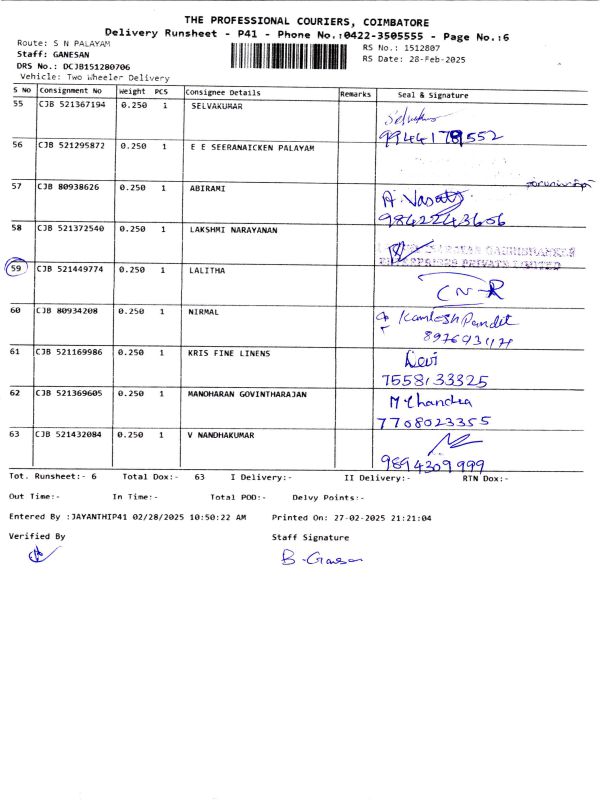 THE PROFESSIONAL COURIERS, COIMBATORE
Delivery Runsheet - P41 - Phone No.:0422-3505555 - Page No.:6
Route: S N PALAYAM
RS No.: 1512807
Staff: GANESAN
RS Date: 28-Feb-2025
DRS No.: DCJB151280706
Vehicle: Two Wheeler Delivery
S No Consignment No Weight PCS Consignee Details Remarks Seal & Signature
55 CJB 521367194 0.250 1 SELVAKUMAR
9944178552
56 CJB 521295872 0.250 1 E E SEERANAICKEN PALAYAM
57 CJB 80938626 0.250 1 ABIRAMI
9842243606
58 CJB 521372540 0.250 1 LAKSHMI NARAYANAN
PRIVATE LIMITED
59 CJB 521449774 0.250 1 LALITHA
CN-R
60 CJB 80934208 0.250 1 NIRMAL
Kamlesh Pandit
61 CJB 521169986 0.250 1 KRIS FINE LINENS
Devi
7558133325
62 CJB 521369605 0.250 1 MANOHARAN GOVINTHARAJAN
M Chandra
7708023355
63 CJB 521432084 0.250 1 V NANDHAKUMAR
9894309999
Tot. Runsheet:- 6 Total Dox:- 63 I Delivery:- II Delivery:- RTN Dox:-
Out Time:- In Time:- Total POD:- Delvy Points:-
Entered By :JAYANTHIP41 02/28/2025 10:50:22 AM Printed On: 27-02-2025 21:21:04
Verified By Staff Signature